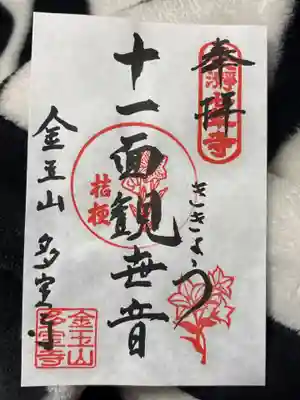 奉拝
ききょう
十一面観世音
桔梗
金玉山 多宝寺
金玉山
多宝寺